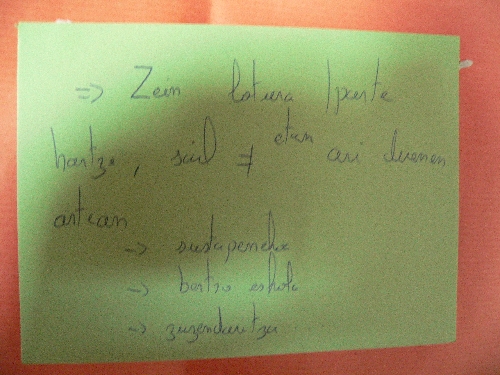 => Zein lotura / parte
hartze, soil ≠ etan ari direnen
artean
-> sustapenekoa
-> bertso eskola
-> zuzendaritza